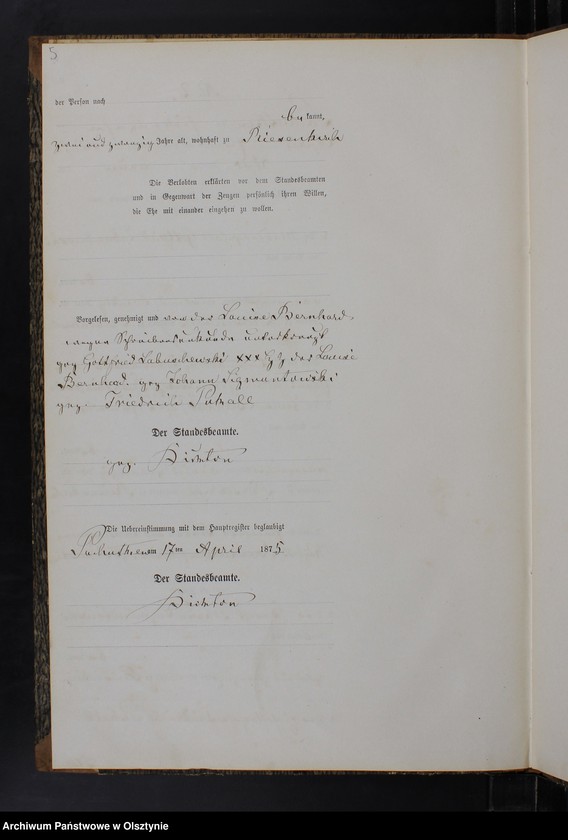 5
der Person nach
be kannt,
zwei und zwanzig Jahre alt, wohnhaft zu Riesenkirch
Die Verlobten erklärten vor dem Standesbeamten
und in Gegenwart der Zeugen persönlich ihren Willen,
die Ehe mit einander eingehen zu wollen.
Vorgelesen, genehmigt und von der Louise Bernhard
wegen Schreibensunkunde unterkreuzt
gez. Gottfried Labuschewski xxx Hz der Louise
Bernhard. gez. Johann
gez. Friedrich
Der Standesbeamte.
gez.
Die Uebereinstimmung mit dem Hauptregister beglaubigt
am 17ten April 1875
Der Standesbeamte.
Archiwum Państwowe w Olsztynie